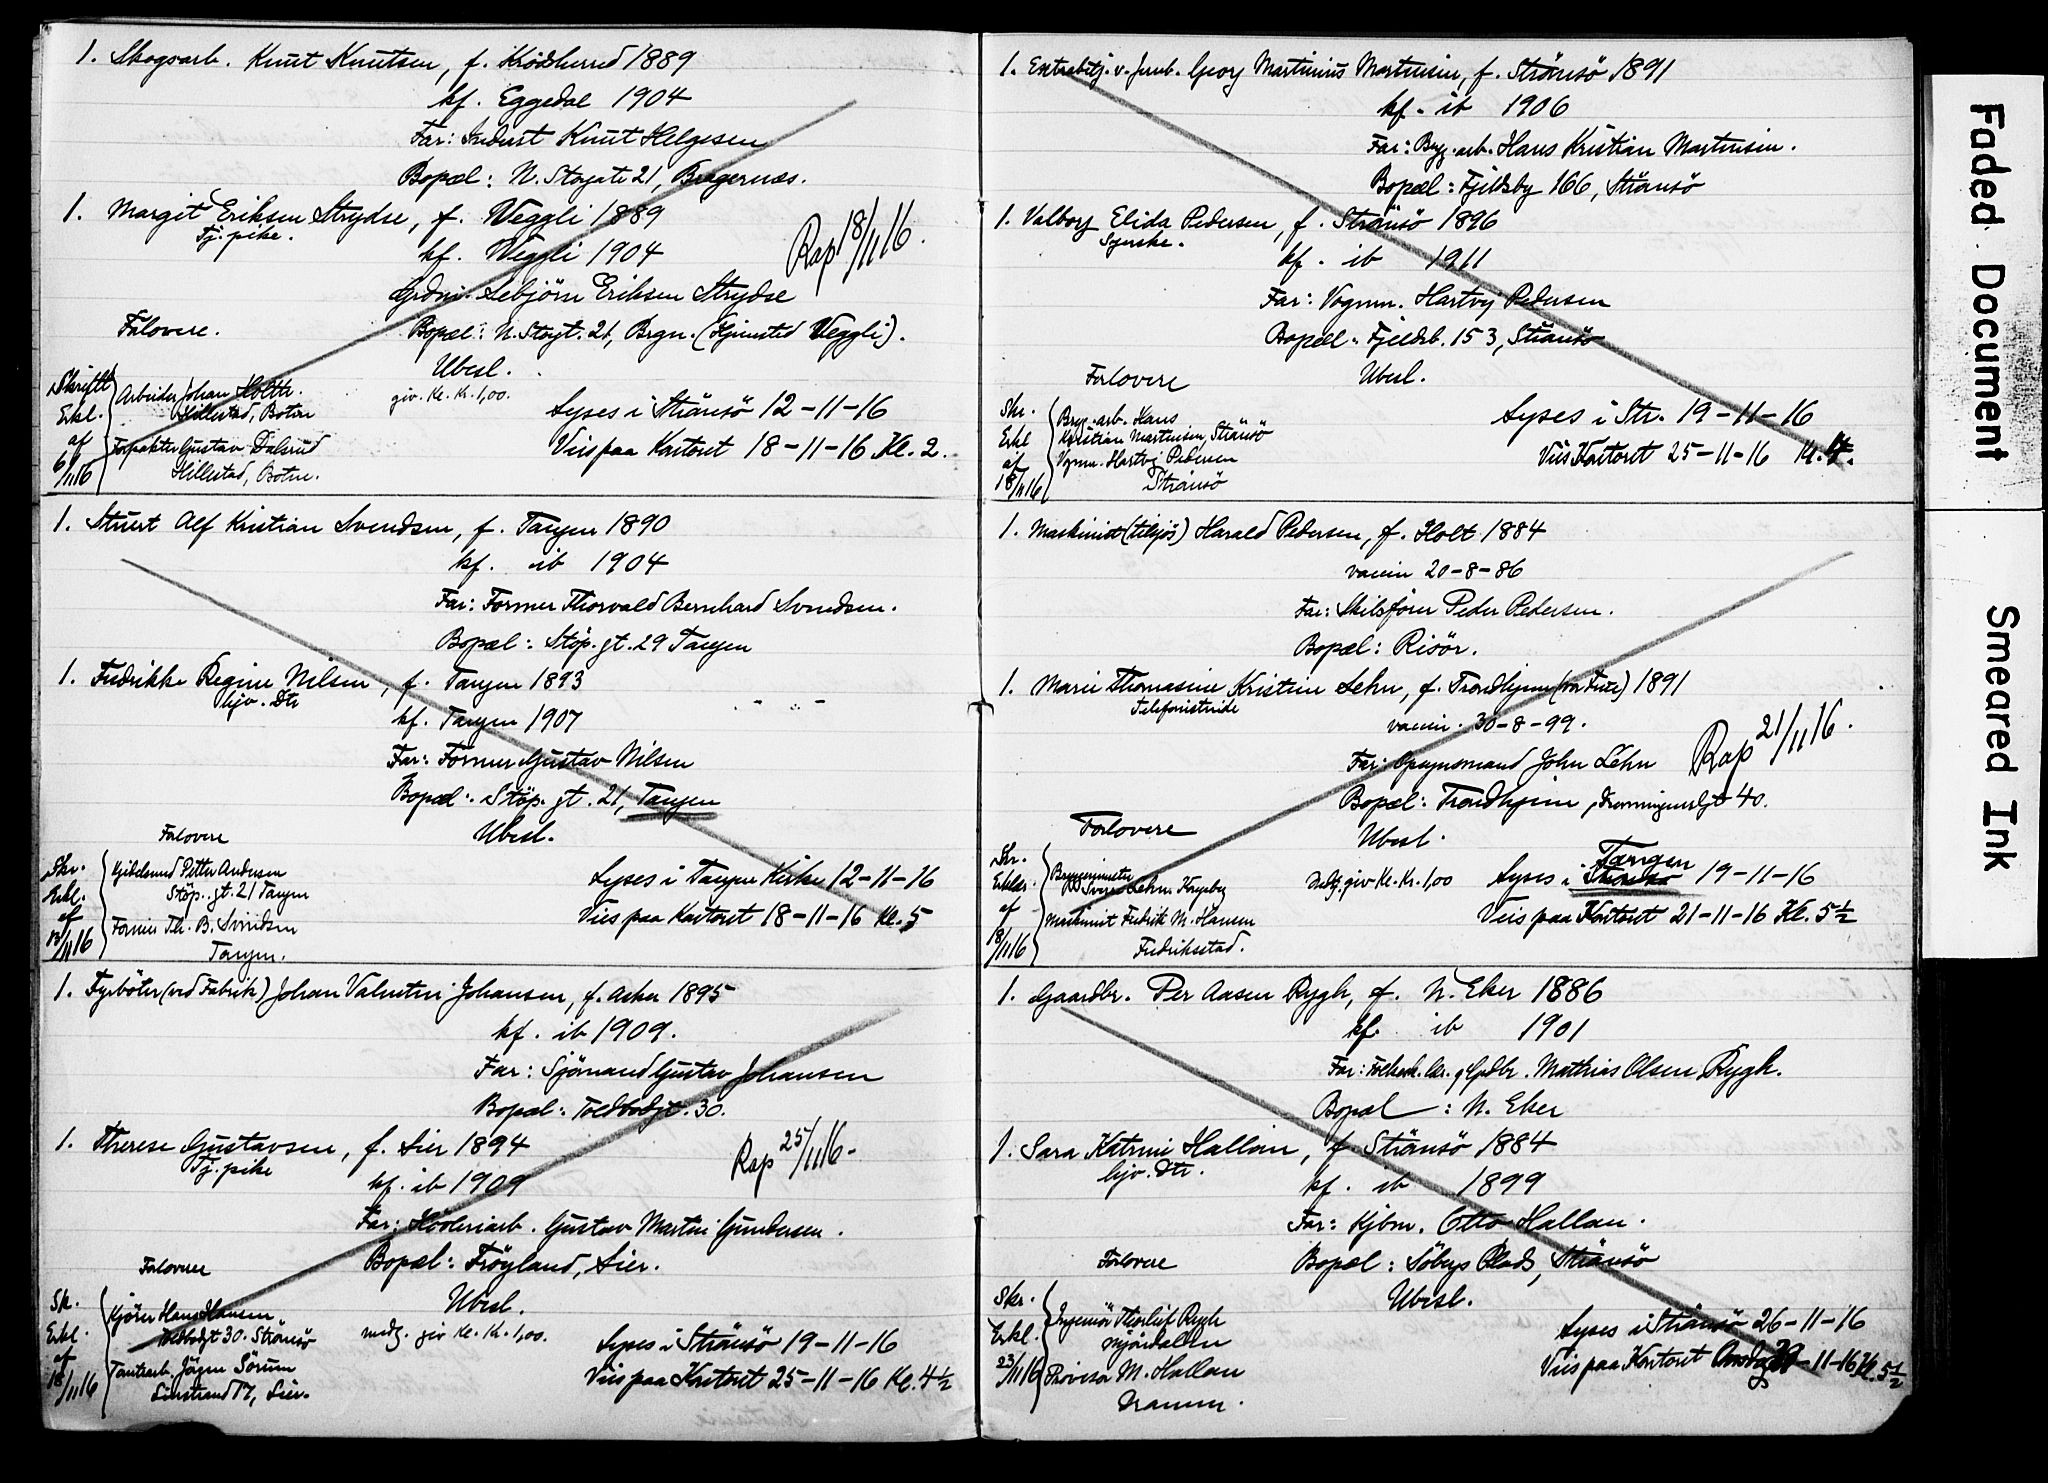 1. Skogsarb. Knut Knutsen, f. Krödsherred 1889
kf. Eggedal 1904
Far: Knut Helgesen
Bopæl: N. Storgate 21, Bragernæs.
1. Margit Eriksen Strydse, f. Veggli 1889
Tj. pike.
kf. Veggli 1904
Rap 18/11 16.
Sebjörn Eriksen Strydse
Forlovere. Bopæl: N. Storgt. 21, Brgn. (Hjemsted Veggli).
Ubesl.
giv. Kl. Kr. 1,00.
Skriftl. Erkl. af 6/11 16
Arbeider Johan Holtte.
Hillestad, Botne
Forpakter Gustav Dalsrud
Hillestad, Botne.
Lyses i Strömsö 12-11-16
Vies paa Kontoret 18-11-16 Kl. 2.
1. Stuert Alf Kristian Svendsen, f. Tangen 1890
kf. ib 1904
Far: Former Thorvald Bernhard Svendsen.
Bopæl: Stöp. gt. 29 Tangen
1. Fredrikke Regine Nilsen, f. Tangen 1893
hjv. Dtr
kf. Tangen 1907
Far: Former Gustav Nilsen
Bopæl: Stöp. gt. 21, Tangen
Forlovere Ubesl.
Skr. Erkl. af 13/11 16
Kjedelsmed Petter Andersen
Stöp. gt. 21 Tangen
Former Th. B. Svendsen
Tangen.
Lyses i Tangen Kirke 12-11-16
Vies paa Kontoret 18-11-16 Kl. 5
1. Fyrböter (ved Fabrik) Johan Valentin Johansen, f. Asker 1895
kf. ib 1909.
Far: Sjömand Gustav Johansen
Bopæl: Toldbodgt. 30.
1. Therese Gustavsen, f. Lier 1894
Tj. pike
kf. ib 1909
Rap 25/11 16-
Far: Hövleriarb. Gustav Martin Gundersen.
Bopæl: Fröyland, Lier.
Forlovere
Ubesl.
Sk. Erkl. af 18/11 16
Kjörer Hans Hansen
Toldbodgt 30. Strömsö
Tomtearb. Jörgen Sörum
Linstrand, Lier.
medg. giv Kl. Kr. 1,00.
Lyses i Strömsö 19-11-16
Vies paa Kontoret 25-11-16 Kl. 4½
1. Extrabetj. v. Jernb. Georg Martinius Martinsen, f. Strömsö 1891
kf. ib 1906
Far: Bryg. arb. Hans Kristian Martinsen.
Bopæl: Fjeldsby 166, Strömsö
1. Valborg Elida Pedersen, f. Strömsö 1896
Syerske.
kf. ib 1911
Far: Vognm. Hartvig Pedersen
Bopæl: Fjeldsb. 153, Strömsö
Forlovere Ubesl.
Skr. Erkl af 18/11 16
Bryg. arb. Hans
Kristian Martinsen, Strömsö
Vognm. Hartvig Pedersen
Strömsö
Lyses i Str. 19-11-16
Vies Kontoret 25-11-16 Kl. 4.
1. Maskinist (tilsjös) Harald Pedersen, f. Holt 1884
vaccin 20-8-86
Far: Skibsförer Peder Pedersen.
Bopæl: Risör.
1. Marie Thomasine Kristine Lehn, f. Trondhjem (Vor Frue) 1891
Telefonistinde
vaccin. 30-8-99.
Rap 21/11 16.
Far: Opsynsmand John Lehn
Bopæl: Trondhjem, Dronningensgt 40.
Forlovere Ubesl.
Skr. Erklær. af 18/11 16
Byggmester
Sverre Lehn. Krageby
Maskinist Fredrik M. Hansen
Fredriksstad.
Medg. giv Kl. Kr. 1,00
Lyses i Tangen 19-11-16
Vies paa Kontoret 21-11-16 Kl. 5½
1. Gaardbr. Per Aasen Rygh, f. N. Eker 1886
kf. ib 1901
Far: Folkesk. lær. og Gdbr. Mathias Olsen Rygh.
Bopæl: N. Eker
1. Sara Katrine Hallan, f. Strömsö 1884
hjv. Dtr.
kf. ib 1899
Far: Kjbm. Otto Hallan.
Forlovere Bopæl: Söbergs Plads, Strömsö
Ubesl.
Skr. Erkl. 23/11 16
Ingeniör Thorleif Rygh
Mjöndalen
Provisor M. Hallan
Dramm.
Lyses i Strömsö 26-11-16
Vies paa Kontoret Onsdag 29-11-16 Kl. 5½
Faded Document
Smeared Ink